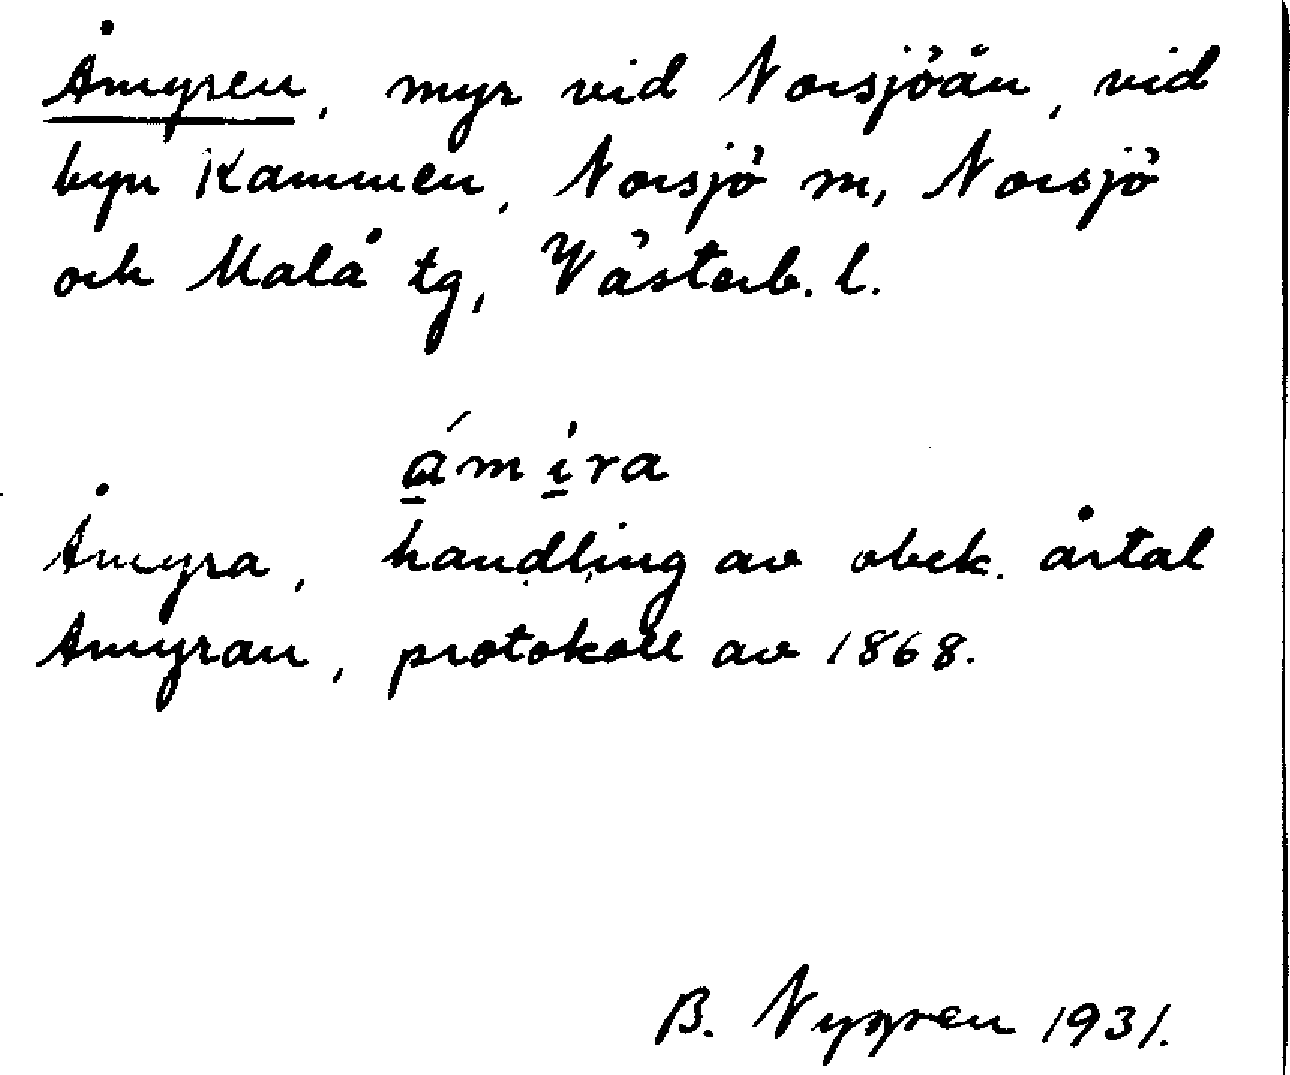 Åmyren, myr vid Norsjöån, vid
byn Kammen, Norsjö sn, Norsjö
och Malå tg, Västerb. l.
á̱mí̱ra
Åmyra, handling av obek. årtal
Åmyran, protokoll av 1868.
B. Nygren 1931.